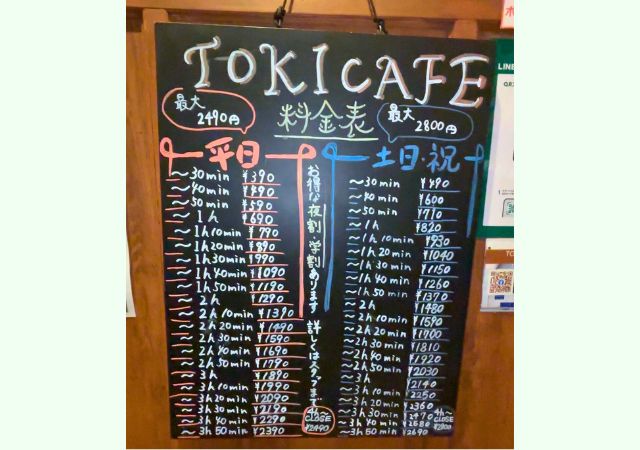 TOKI CAFE
最大
2490円
料金表
最大
2800円
平日
~30min ¥390
~40min ¥490
~50min ¥590
~1h ¥690
~1h10min ¥790
~1h20min ¥890
~1h30min ¥990
~1h40min ¥1090
~1h50min ¥1190
~2h ¥1290
~2h10min ¥1390
~2h20min ¥1490
~2h30min ¥1590
~2h40min ¥1690
~2h50min ¥1790
~3h ¥1890
~3h10min ¥1990
~3h20min ¥2090
~3h30min ¥2190
~3h40min ¥2290
~3h50min ¥2390
4h~
CLOSE
¥2490
お得な夜割・学割あります
詳しくはスタッフまで
土日・祝
~30min ¥490
~40min ¥600
~50min ¥710
~1h ¥820
~1h10min ¥930
~1h20min ¥1040
~1h30min ¥1150
~1h40min ¥1260
~1h50min ¥1370
~2h ¥1480
~2h10min ¥1590
~2h20min ¥1700
~2h30min ¥1810
~2h40min ¥1920
~2h50min ¥2030
~3h ¥2140
~3h10min ¥2250
~3h20min ¥2360
~3h30min ¥2470
~3h40min ¥2580
~3h50min ¥2690
4h~
CLOSE
¥2800
LINE